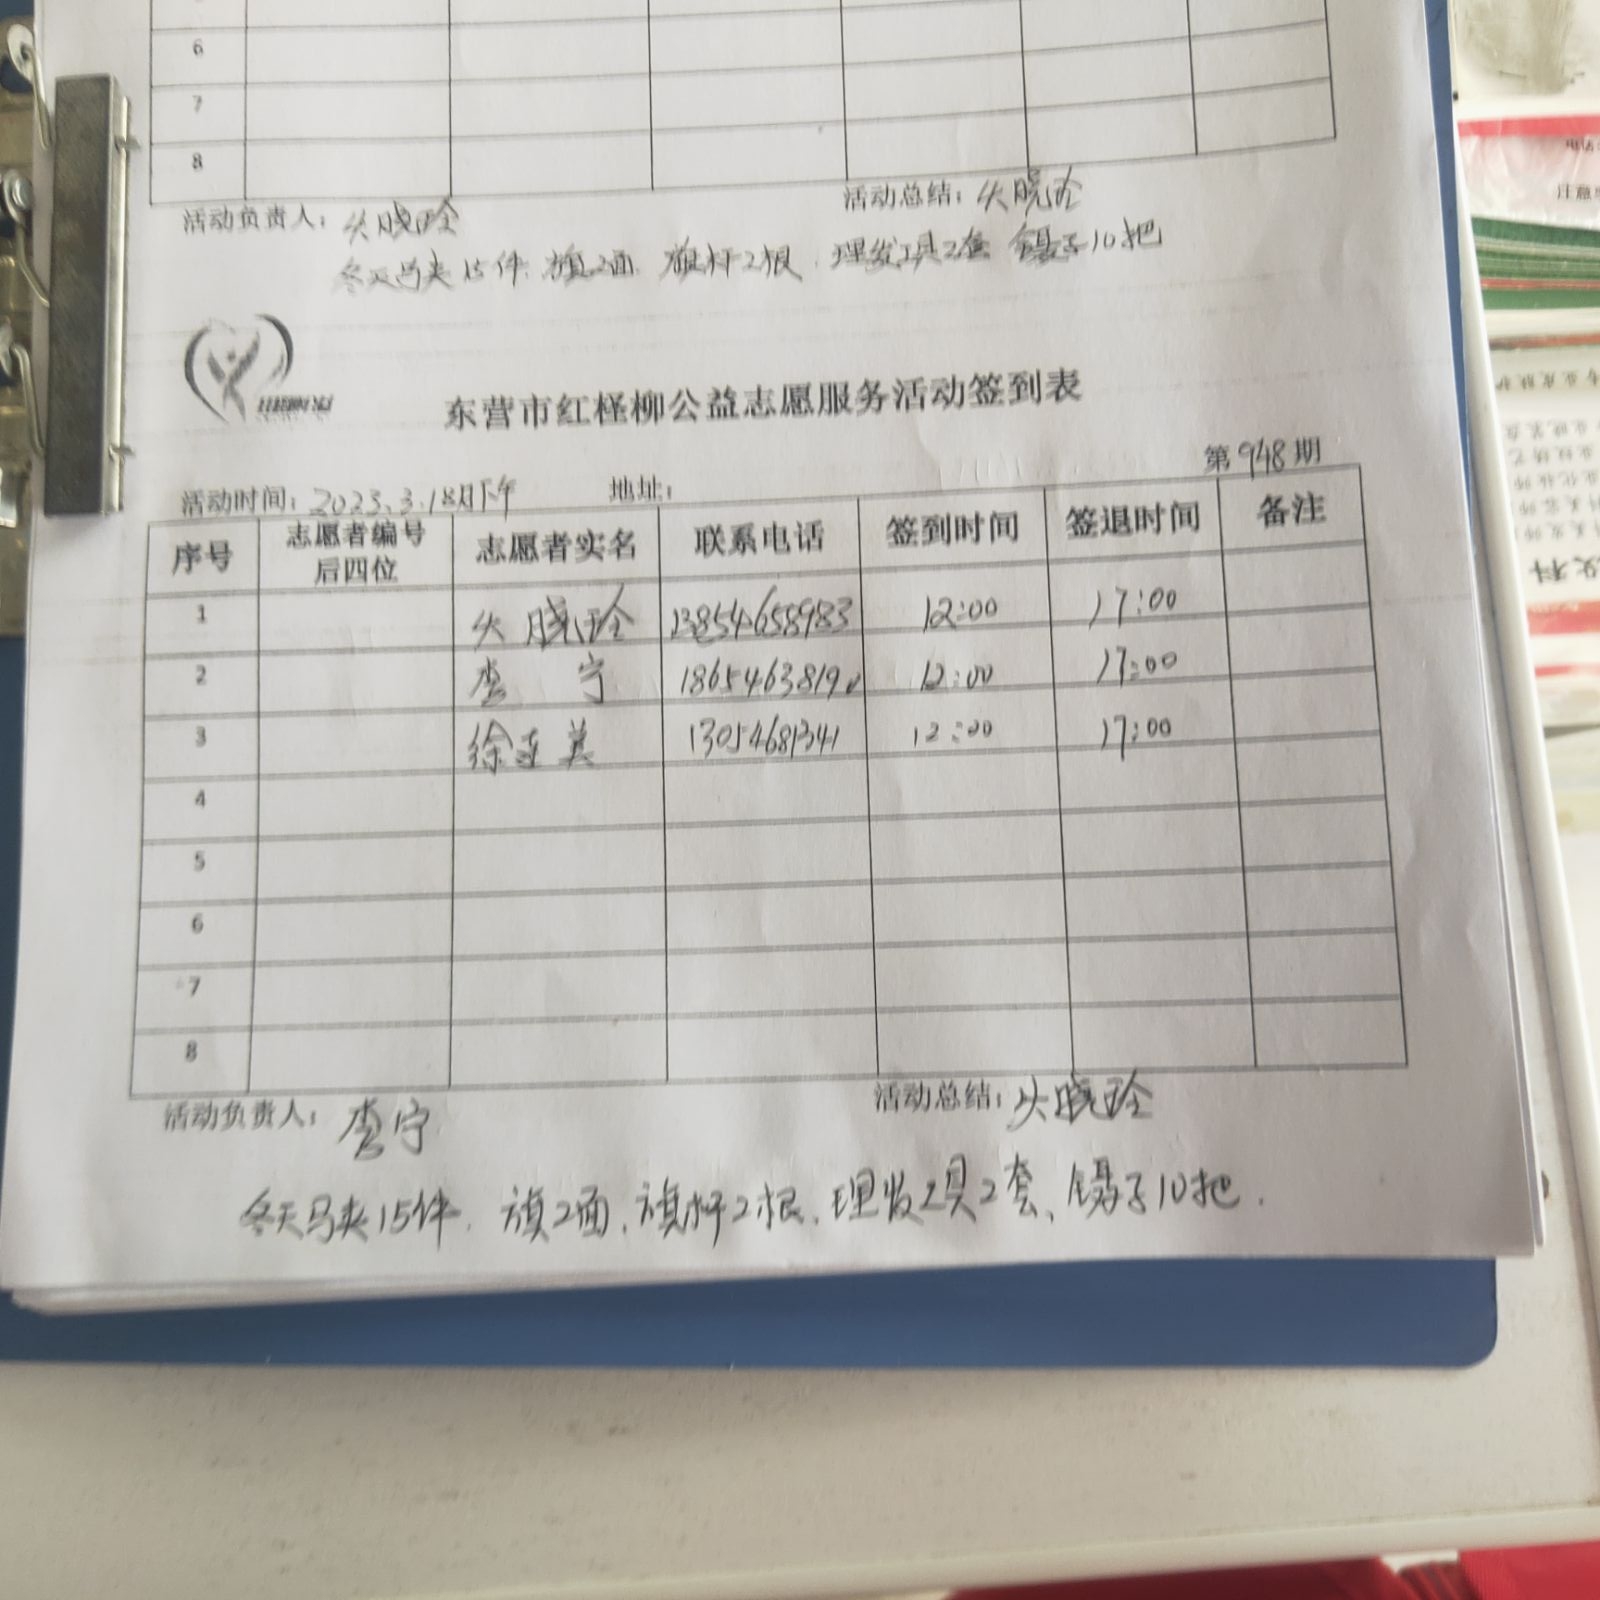 6
7
8
活动负责人： 活动总结：
冬天马夹15件. 旗2面. 旗杆2根. 理发工具2套 镊子10把
东营市红柽柳公益志愿服务活动签到表
第948期
活动时间：2023.3.18日下午 地址：
序号 志愿者编号后四位 志愿者实名 联系电话 签到时间 签退时间 备注
1 13854658983 12:00 17:00
2 李宁 1865463819 12:00 17:00
3 徐连美 13054681341 12:00 17:00
4
5
6
7
8
活动负责人：李宁 活动总结：
冬天马夹15件. 旗2面、旗杆2根、理发工具2套、镊子10把.